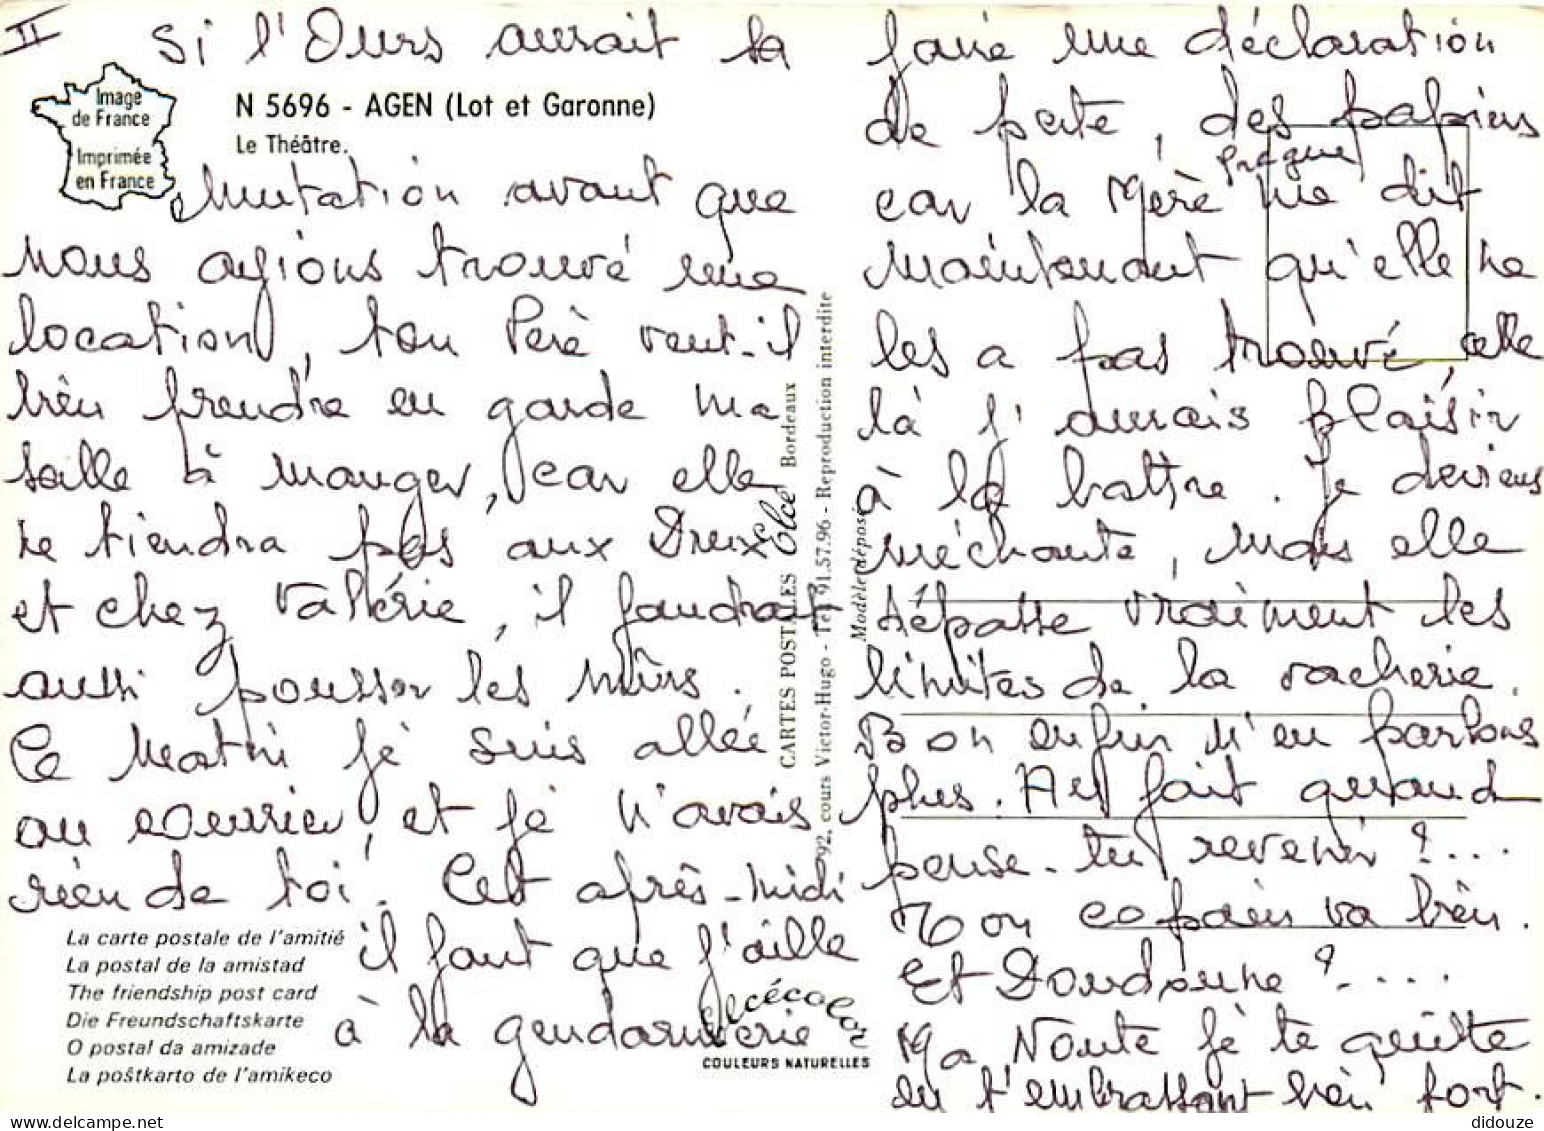 II
Si l'Ours aurait sa
Image
de France
Imprimée
en France
N 5696 - AGEN (Lot et Garonne)
Le Théâtre.
Mutation avant que
nous ayions trouvé une
location, ton Père veut-il
bien prendre en garde ma
salle à manger, car elle
ne tiendra pas aux Dreux
et chez Valérie, il faudrait
aussi pousser les mûrs.
Ce Matin je suis allée
au courrier, et je n'avais
rien de toi. Cet après-midi
il faut que j'aille
à la gendarmerie
La carte postale de l'amitié
La postal de la amistad
The friendship post card
Die Freundschaftskarte
O postal da amizade
La poŝtkarto de l'amikeco
Elcécolor
COULEURS NATURELLES
CARTES POSTALES Elcé Bordeaux
92, cours Victor-Hugo - Tél. 91.57.96 - Reproduction interdite
Modèle déposé
faire une déclaration
de perte, des papiers
car la Mère me dit
maintenant qu'elle ne
les a pas trouvé, elle
là j'aurais plaisir
à la battre. Je deviens
méchante, mais elle
dépasse vraiment les
limites de la vacherie.
Bon enfin n'en parlons
plus. Au fait quand
pense-tu revenir ?...
Ton copain va bien.
Et Doudoune ?....
Ma Noute je te quitte
en t'embrassant bien fort.
didouze